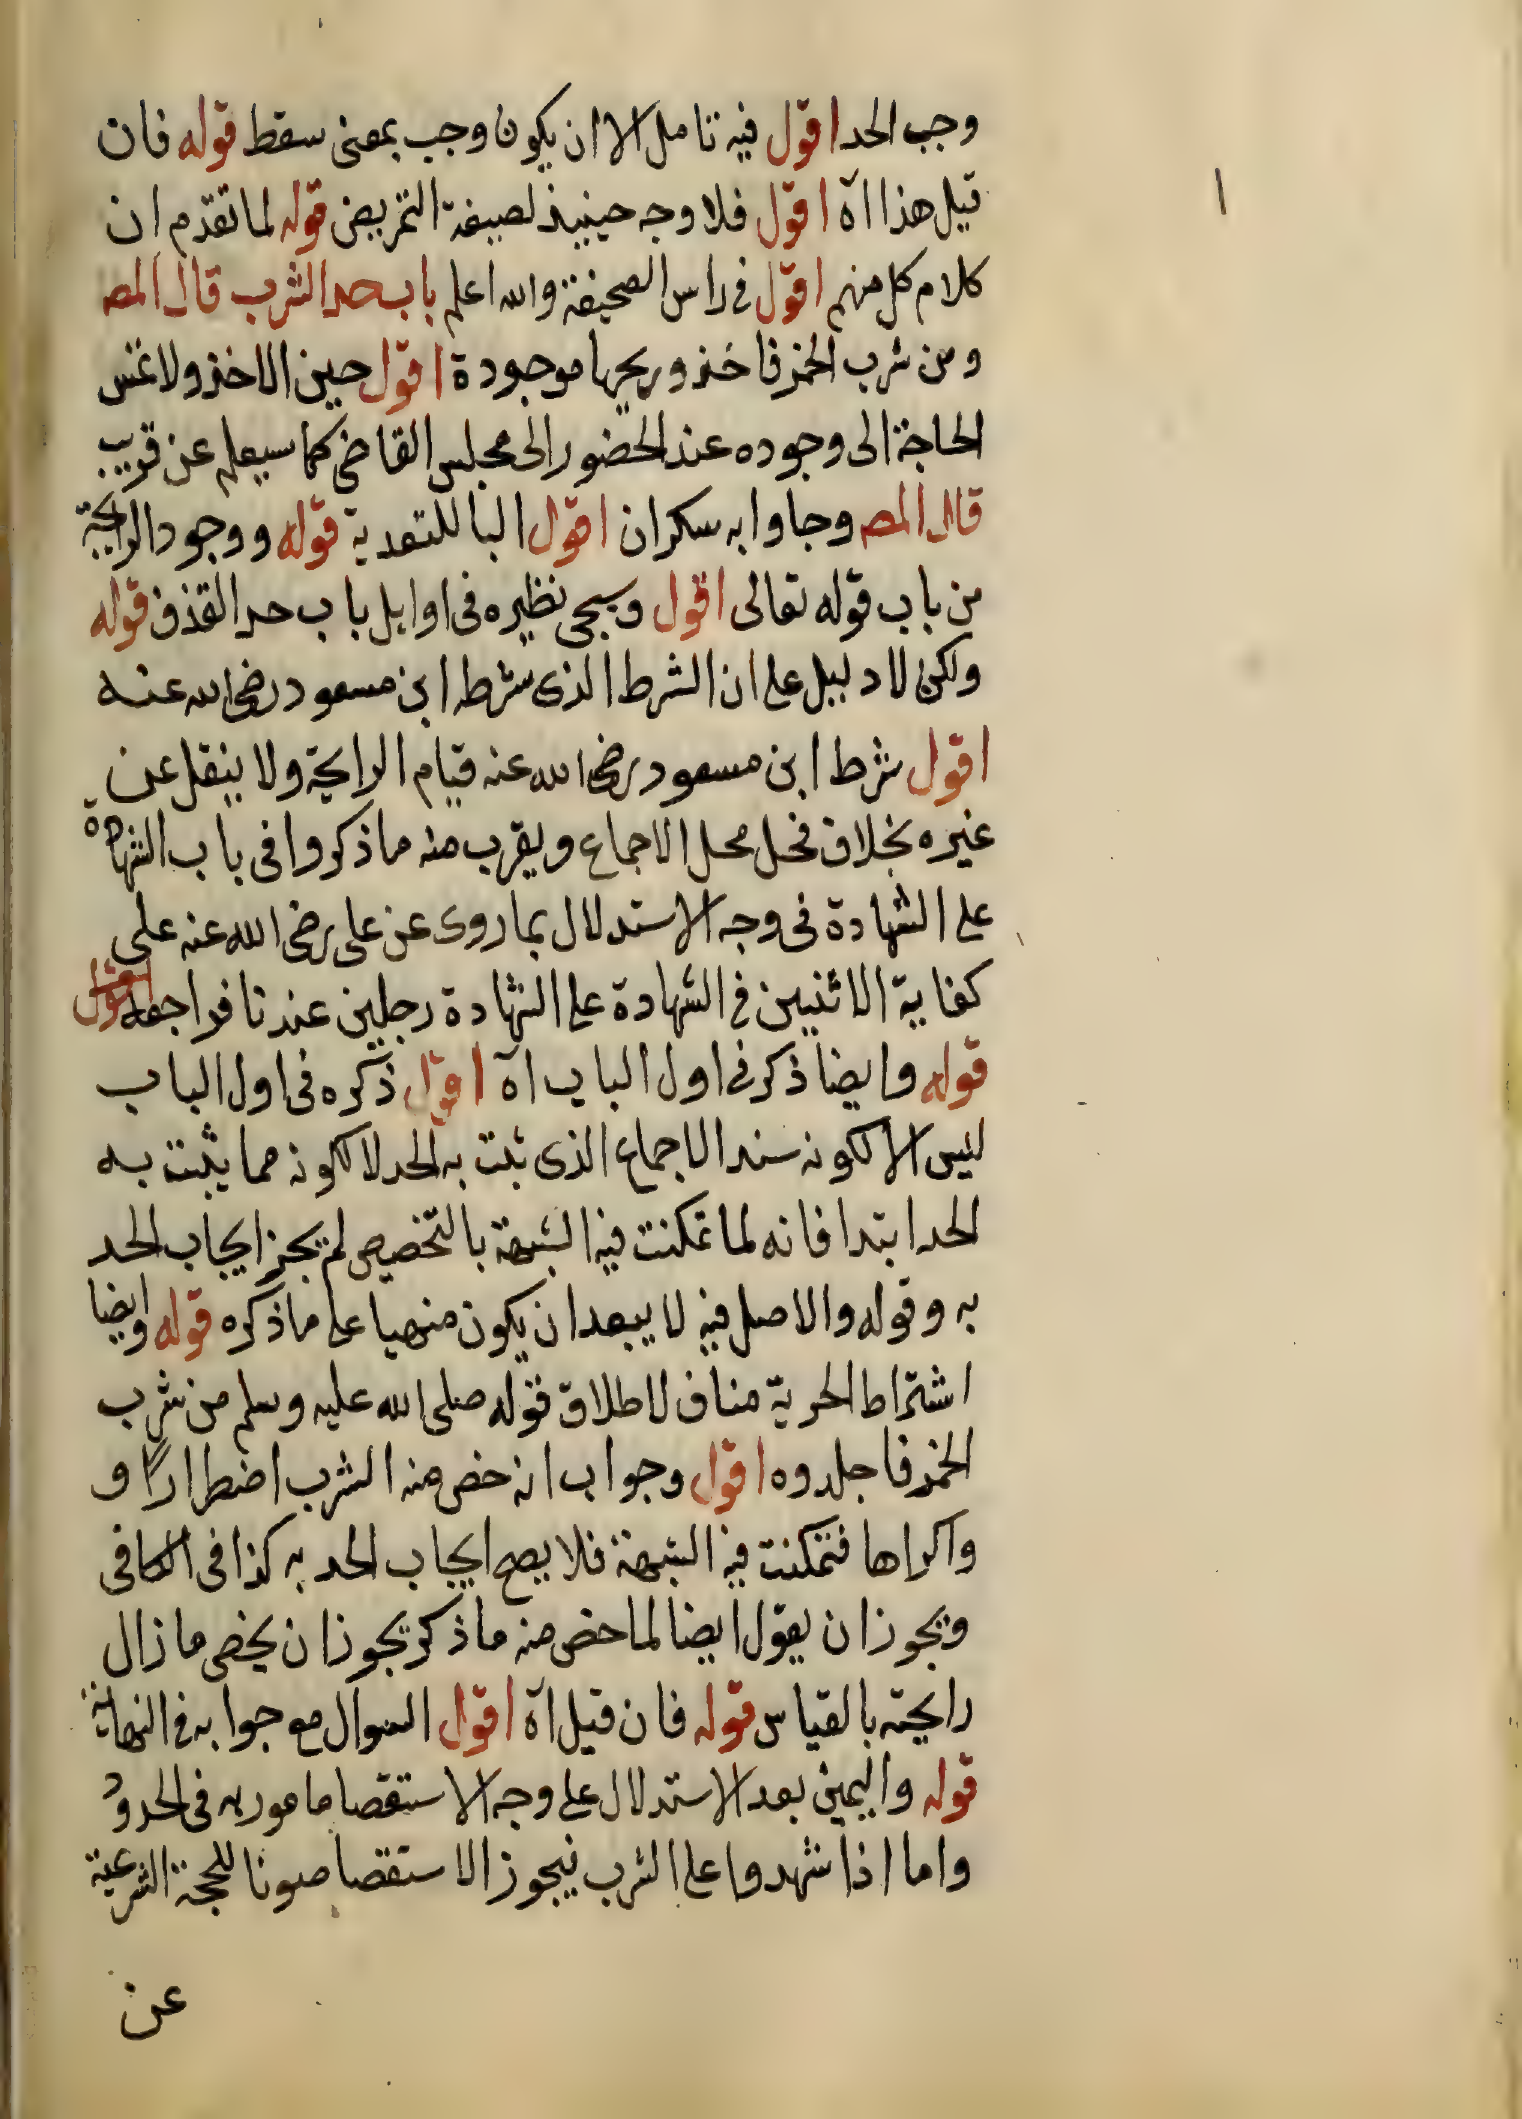 وجب الحد اقول فيه تامل الا ان يكون وجب بمعنى سقط قوله فان
قيل هذا اه اقول فلا وجه حينيذ لصيغة التمريض قوله لما تقدم ان
كلام كل منهم اقول فى راس الصحيفة والله اعلم باب حد الشرب قال المص
ومن شرب الخمر فاخذ وريحها موجودة اقول حين الاخذ ولا تمس
الحاجة الى وجوده عند الحضور الى مجلس القاضى كما سيعلم عن قريب
قال المص وجاوا به سكران اقول البا للتعدية قوله ووجود الرايحة
من باب قوله تعالى اقول وسيجى نظيره فى اوايل باب حد القذف قوله
ولكن لا دليل على ان الشرط الذى شرطه ابن مسعود رضى الله عنه
اقول شرط ابن مسعود رضى الله عنه قيام الرايحة ولا ينقل عن
غيره بخلاف فحل محل الاجماع ويقرب منه ما ذكروا فى باب الشهادة
على الشهادة فى وجه الاستدلال بما روى عن على رضى الله عنه على
كفاية الاثنين فى الشهادة على الشهادة رجلين عندنا فراجعه
قوله وايضا ذكر فى اول الباب اه اقول ذكره فى اول الباب
ليس الا لكونه سند الاجماع الذى ثبت به الحد لا لكونه مما يثبت به
الحد ابتدا فانه لما تمكنت فيه الشبهة بالتخصيص لم يجز ايجاب الحد
به وقوله والاصل فيه لا يبعد ان يكون منهيا على ما ذكره قوله وايضا
اشتراط الحرية مناف لاطلاق قوله صلى الله عليه وسلم من شرب
الخمر فاجلدوه اقول وجواب انه خص منه الشرب اضطرارًا و
واكراها فتمكنت فيه الشبهة فلا يصح ايجاب الحد به كذا فى الكافى
ويجوز ان يقول ايضا لما خص منه ما ذكر يجوز ان يخص ما زال
رايحته بالقياس قوله فان قيل اه اقول السوال مع جوابه فى النهاية
قوله واليمين بعد الاستدلال على وجه الاستقصا مامور به فى الحدود
واما اذا شهدوا على الشرب فيجوز الاستقصا صونا للحجة الشرعية
عن